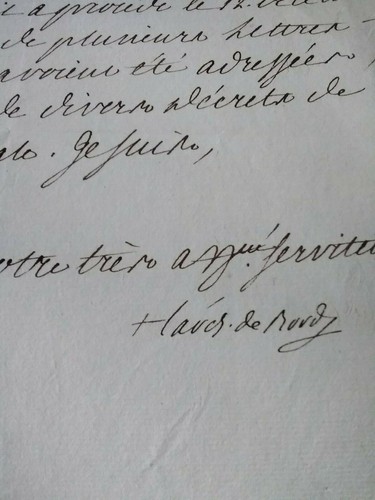 a procuré le
de plusieurs lettres
avoient été adressées,
de divers décrets de
Je suis,
votre très aff.né serviteur
+ l'arch. de Bord